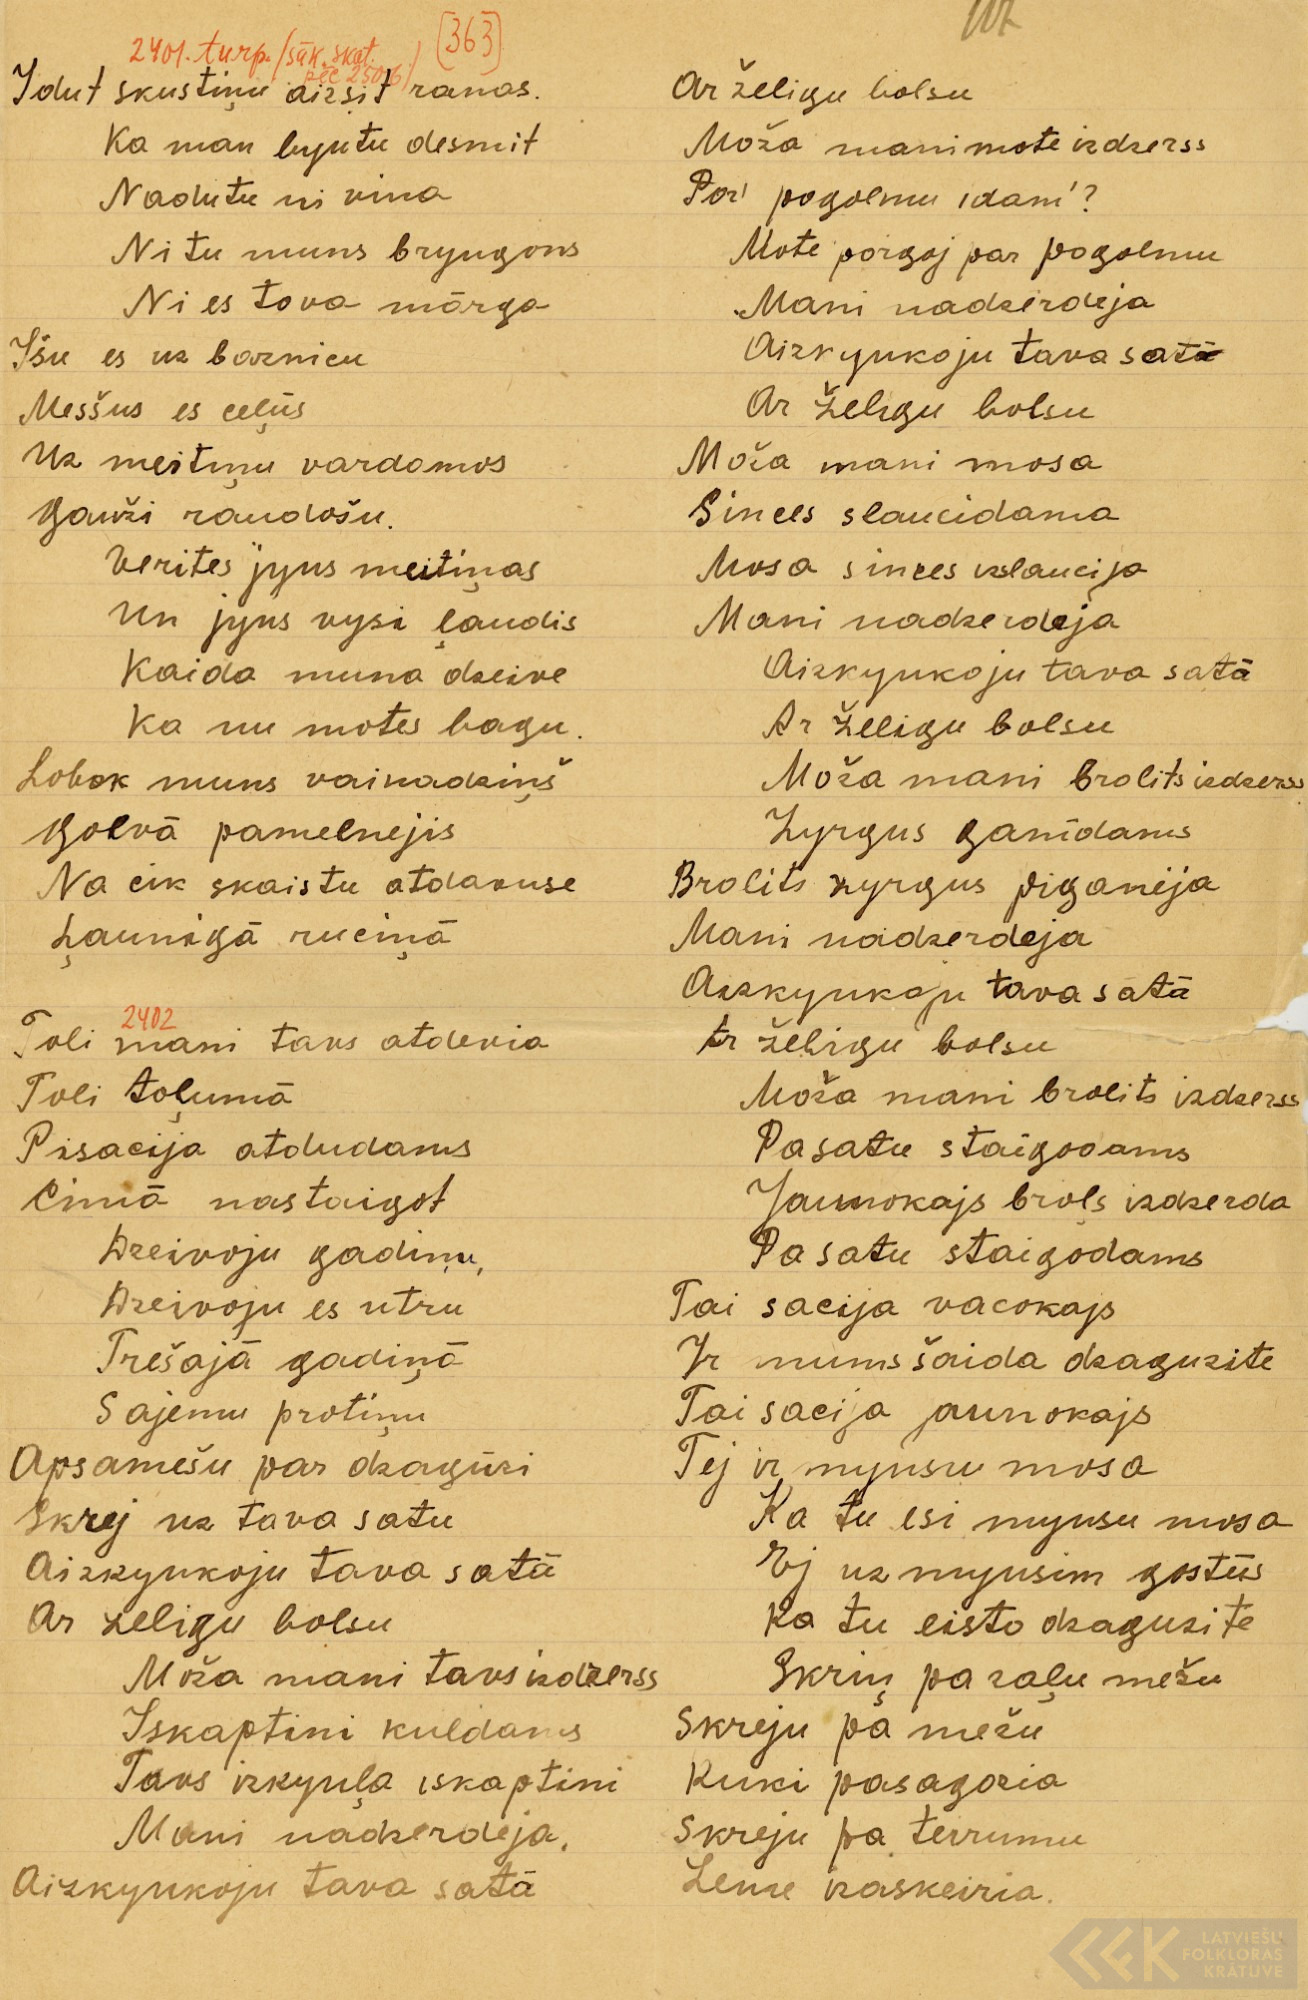 2401. turp. /sāk. skat.
pēc 2506/
[363]
Idut skustiņu aizsit ranas.
Ka man byutu desmit
Nadutu ni vina
Ni tu muns bryugons
Ni es tova mārga
Īšu es uz baznicu
Messšus es ceļūs
Uz meitiņu vardomos
Gauži raudošu.
Verites jyus meitiņas
Un jyus vysi ļaudis
Kaida muna dzeive
Ka nu motes bagu.
Lobok muns vainadziņš
Golvā pamelnejis
Na cik skaistu atdavuse
Ļaunigā ruciņā
2402
Toli mani tavs atdevia
Toli toļumā
Pisacija atdudams
Cimā nastaigot
Dzeivoju gadiņu,
Dzeivoju es utru
Trešajā gadiņā
Sajemu protiņu
Apsamešu par dzagūzi
Skrej uz tava satu
Aizkyukoju tava satā
Ar želigu bolsu
Moža mani tavs izdzerss
Iskaptini kuldams
Tavs izkyuļa iskaptini
Mani nadzerdeja.
Aizkyukoju tava satā
Ar želigu bolsu
Moža mani mote izdzerss
Por' pogolmu idam'?
Mote porgoj par pogolmu
Mani nadzerdeja
Aizkyukoju tava satā
Ar želigu bolsu
Moža mani mosa
Sinces slaucidama
Mosa sinces izslaucija
Mani nadzerdeja
Aizkyukoju tava satā
Ar želigu bolsu
Moža mani brolits izdzerss
Zyrgus ganīdams
Brolits zyrgus piganija
Mani nadzerdeja
Aizkyukoju tava satā
Ar želigu bolsu
Moža mani brolits izdzerss
Pa satu staigodams
Jaunokajs broļs izdzerda
Pa satu staigodams
Tai sacija vacokajs
Ir mums šaida dzaguzite
Tai sacija jaunokajs
Tej ir myusu mosa
Ka tu esi myusu mosa
Ej uz myusim gostūs
Ka tu eisto dzaguzite
Skriņ pa zaļu mežu
Skreju pa mežu
Kuki pasagozia
Skreju pa teirumu
Zeme izaskeiria.
LATVIEŠU
FOLKLORAS
KRĀTUVE